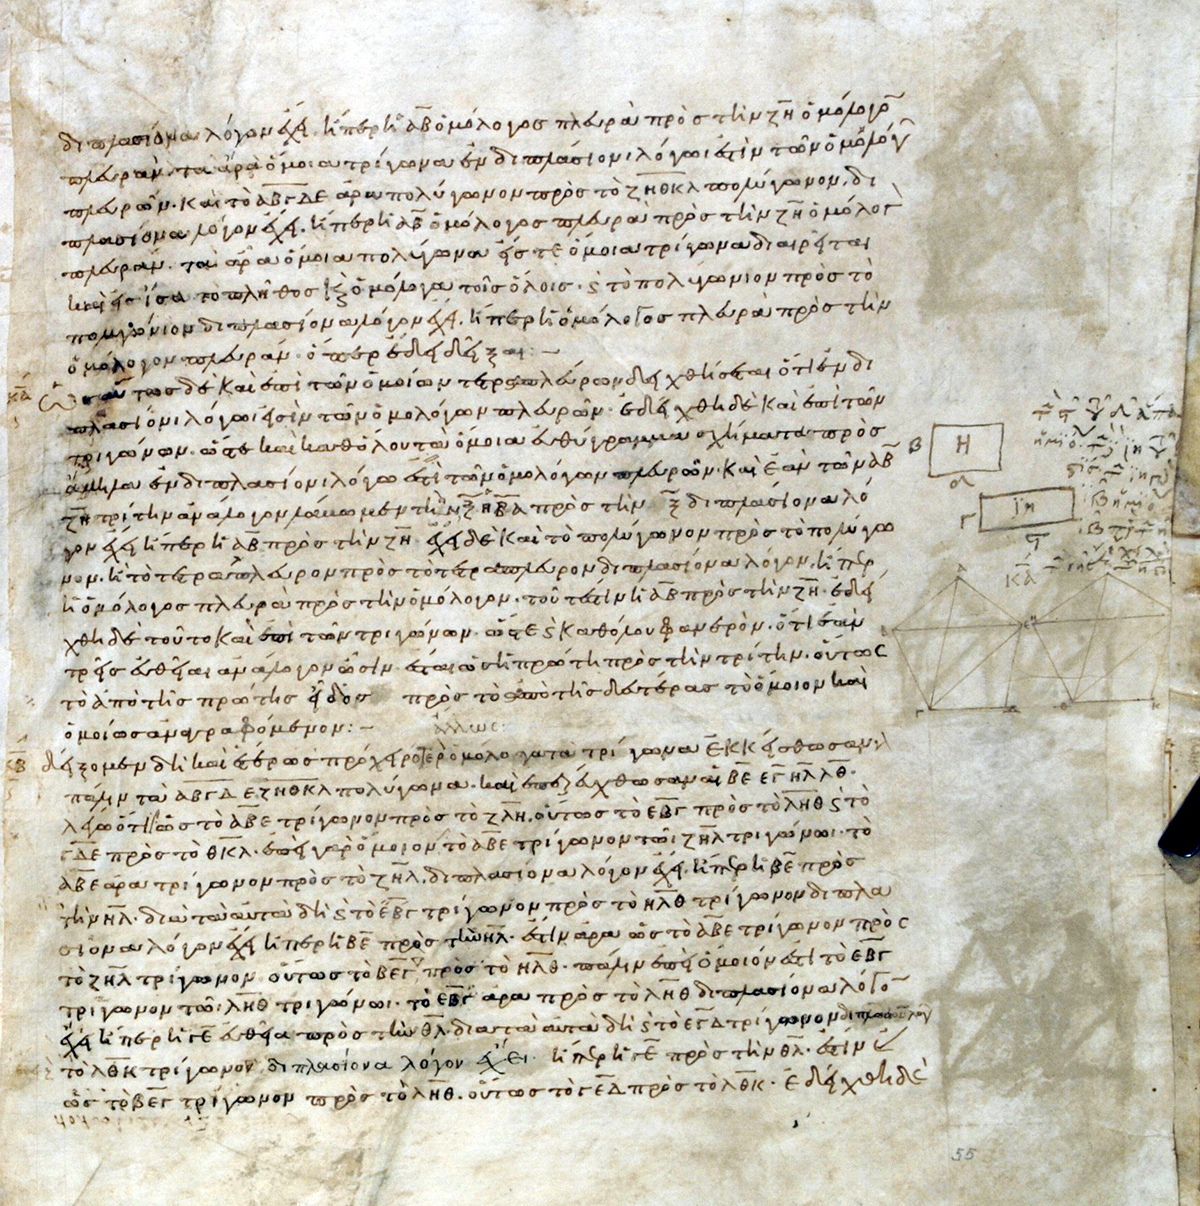 διπλασίονα λόγον ἔχει. ἤπερ ἡ ΑΒ ὁμόλογος πλευρὰ πρὸς τὴν ΖΗ ὁμόλογο
πλευράν. τὰ ἄρα ὅμοια τρίγωνα ἐν διπλασίονι λόγωι ἐστὶν τῶν ὁμολόγ
πλευρῶν. καὶ τὸ ΑΒΓΔΕ ἄρα πολύγωνον πρὸς τὸ ΖΗΘΚΛ πολύγωνον. δι
πλασίονα λόγον ἔχει. ἤπερ ἡ ΑΒ ὁμόλογος πλευρὰ πρὸς τὴν ΖΗ ὁμόλογ
πλευράν. τὰ ἄρα ὅμοια πολύγωνα εἴς τε ὅμοια τρίγωνα διαιρεῖται
καὶ εἰς ἴσα τὸ πλῆθος καὶ ὁμόλογα τοῖς ὅλοις. ϛ τὸ πολυγώνιον πρὸς τὸ
πολυγώνιον διπλασίονα λόγον ἔχει. ἤπερ ἡ ὁμόλογος πλευρὰ πρὸς τὴν
ὁμόλογον πλευράν. ὅπερ ἔδει δεῖξαι:
ΚΑ ὡσαύτως δὲ καὶ ἐπὶ τῶν ὁμοίων τετραπλεύρων δειχθήσεται ὅτι ἐν δι
πλασίονι λόγωι εἰσὶν τῶν ὁμολόγων πλευρῶν. ἐδείχθη δὲ καὶ ἐπὶ τῶν
τριγώνων. ὥστε καὶ καθόλου τὰ ὅμοια εὐθύγραμμα σχήματα πρὸς
ἄλληλα ἐν διπλασίονι λόγω ἐστὶ τῶν ὁμολόγων πλευρῶν. καὶ ἐὰν τῶν ΑΒ
ΖΗ τρίτην ἀνάλογον λάβωμεν τὴν Ξ ἡ ΒΑ πρὸς τὴν Ξ διπλασίονα λό
γον ἔχει ἤπερ ἡ ΑΒ πρὸς τὴν ΖΗ ἔχει δὲ καὶ τὸ πολύγωνον πρὸς τὸ πολύγω
νον. ἢ τὸ τετράπλευρον πρὸς τὸ τετράπλευρον διπλασίονα λόγον. ἤπερ
ἡ ὁμόλογος πλευρὰ πρὸς τὴν ὁμόλογον. τουτέστιν ἡ ΑΒ πρὸς τὴν ΖΗ. ἐδεί
χθη δὲ τοῦτο καὶ ἐπὶ τῶν τριγώνων. ὥστε ϛ καθόλου φανερὸν. ὅτι ἐὰν
τρεῖς εὐθεῖαι ἀνάλογον ὦσιν. ἔσται ὡς ἡ πρώτη πρὸς τὴν τρίτην. οὕτως
τὸ ἀπὸ τῆς πρώτης εἶδος πρὸς τὸ ἀπὸ τῆς δευτέρας τὸ ὅμοιον καὶ
ὁμοίως ἀναγραφόμενον: ἄλλως:
ΚΒ δείξομεν δὴ καὶ ἑτέρως προχειρότερον ὁμόλογα τὰ τρίγωνα ἐκκείσθωσαν
πάλιν τὰ ΑΒΓΔΕ ΖΗΘΚΛ πολύγωνα. καὶ ἐπεζεύχθωσαν αἱ ΒΕ ΕΓ ΗΛ ΛΘ.
λέγω ὅτι ὡς τὸ ΑΒΕ τρίγωνον πρὸς τὸ ΖΛΗ. οὕτως τὸ ΕΒΓ πρὸς τὸ ΛΗΘ ϛ τὸ
ΓΔΕ πρὸς τὸ ΘΚΛ. ἐπεὶ γὰρ ὅμοιον τὸ ΑΒΕ τρίγωνον τῶι ΖΗΛ τριγώνωι. τὸ
ΑΒΕ ἄρα τρίγωνον πρὸς τὸ ΖΗΛ. διπλασίονα λόγον ἔχει. ἤπερ ἡ ΒΕ πρὸς
τὴν ΗΛ. διὰ τὰ αὐτὰ δὴ ϛ τὸ ΕΒΓ τρίγωνον πρὸς τὸ ΗΛΘ τρίγωνον διπλα
σίονα λόγον ἔχει ἤπερ ἡ ΒΕ πρὸς τὴν ΗΛ. ἔστιν ἄρα ὡς τὸ ΑΒΕ τρίγωνον πρὸς
τὸ ΖΗΛ τρίγωνον. οὕτως τὸ ΒΕΓ πρὸς τὸ ΗΛΘ. πάλιν ἐπεὶ ὅμοιόν ἐστι τὸ ΕΒΓ
τρίγωνον τῶι ΛΗΘ τριγώνωι. τὸ ΕΒΓ ἄρα πρὸς τὸ ΛΗΘ διπλασίονα λόγο
ἔχει ἤπερ ἡ ΓΕ εὐθεῖα πρὸς τὴν ΘΛ. διὰ τὰ αὐτὰ δὴ ϛ τὸ ΕΓΔ τρίγωνον
τὸ ΛΘΚ τρίγωνον διπλασίονα λόγον ἔχει. ἤπερ ἡ ΓΕ πρὸς τὴν ΘΛ. ἔστιν
ὡς τὸ ΒΕΓ τρίγωνον πρὸς τὸ ΛΗΘ. οὕτως τὸ ΓΕΔ πρὸς τὸ ΛΘΚ. ἐδείχθη δὲ
Β Η
ΙΗ
Γ
ΚΑ
55